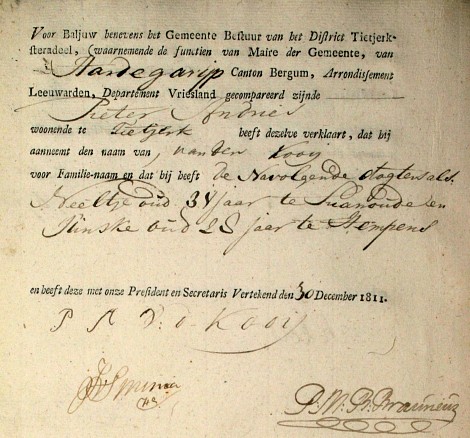 Voor Baljuw benevens het Gemeente Bestuur van het District Tietjerk-
steradeel, (waarnemende de functien van Maire der Gemeente, van
Hardegarijp Canton Bergum, Arrondissement
Leeuwarden, Departement Vriesland gecompareerd zijnde
Pieter Andries
woonende te Tietjerk heeft dezelve verklaart, dat hij
aanneemt den naam van, van der Kooij
voor Familie-naam en dat hij heeft de Navolgende dogters als.
Neeltje oud 31 jaar te Suawoude en
Rinske oud 28 jaar te Hempens
en heeft deze met onze President en Secretaris Vertekend den 30 December 1811.
P A V. D. Kooij